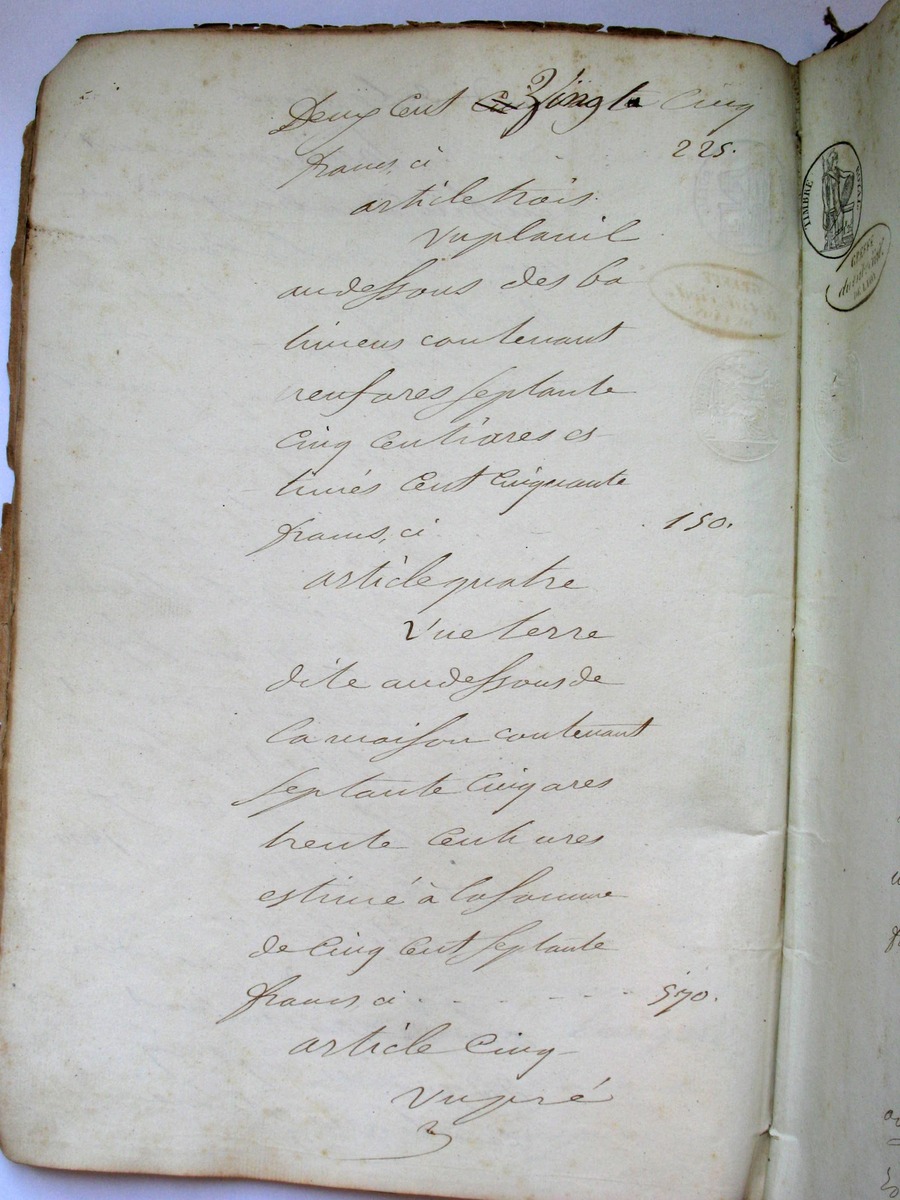 Deux cent vingt cinq
francs, ci 225.
article trois.
un planil
au dessous des ba
timens contenant
neuf ares septante
cinq centiares es
timés cent cinquante
francs, ci 150.
article quatre
une terre
dite au dessous de
la maison contenant
septante cinq ares
trente centiares
estimé à la somme
de cinq cent septante
francs, ci . - - - - - 570.
article cinq
un pré
TIMBRE
ROYAL
GREFFE